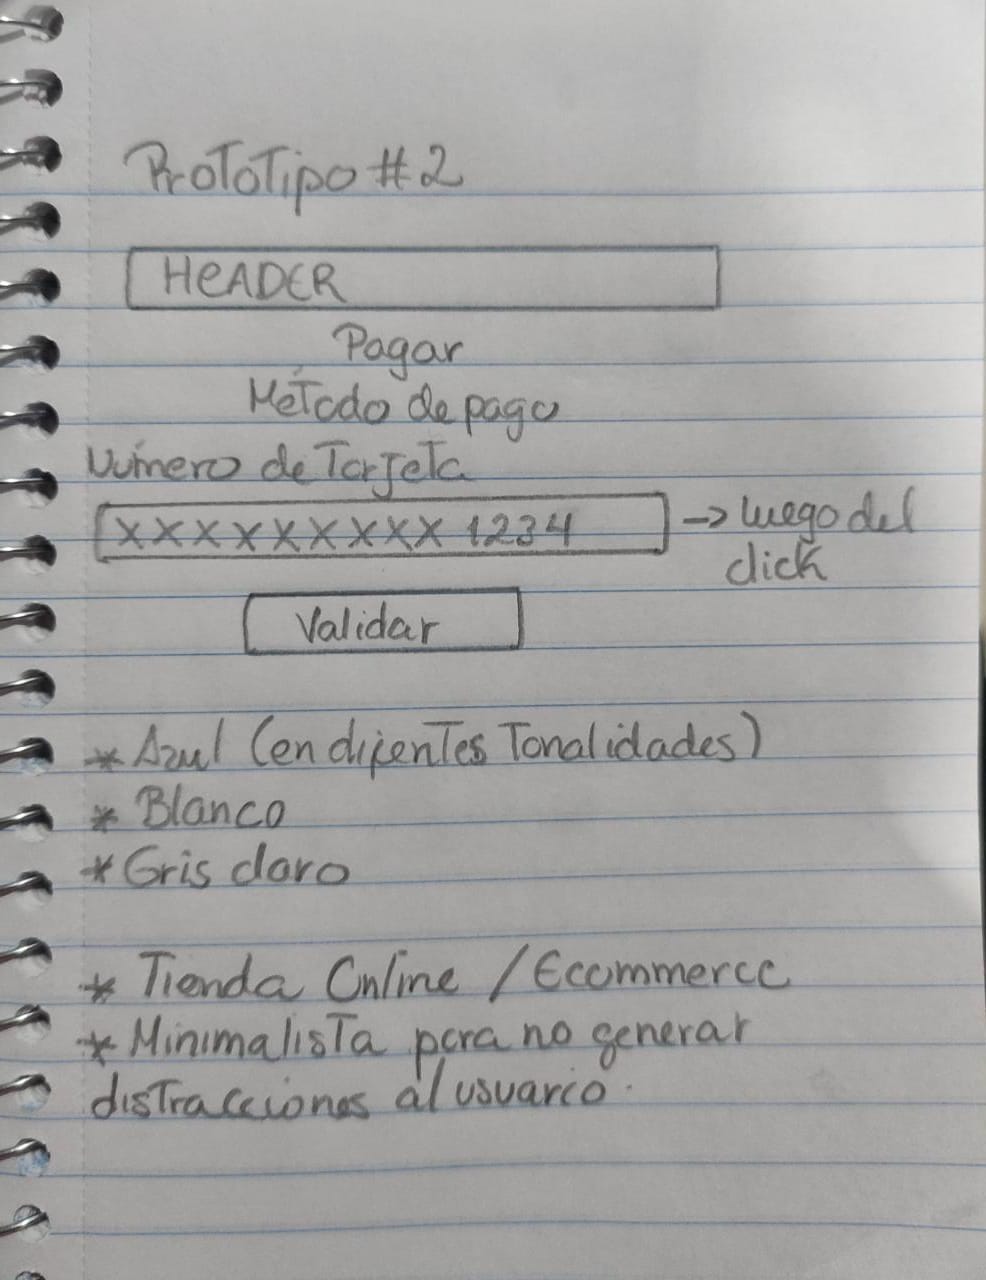 Prototipo #2
HEADER
Pagar
Método de pago
Número de Tarjeta
XXXXXXXXX 1234 → luego del
click
Validar
* Azul (en difentes Tonalidades)
* Blanco
* Gris claro
* Tienda Online / Ecommerce
* Minimalista para no generar
distracciones al usuario.